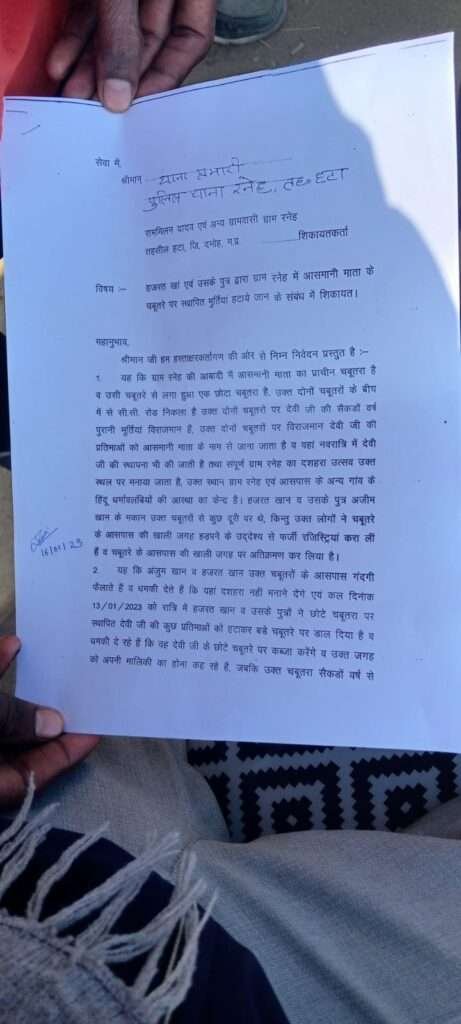 सेवा में,
श्रीमान थाना प्रभारी
पुलिस थाना रनेह, तह. हटा
राममिलन यादव एवं अन्य ग्रामवासी ग्राम रनेह
तहसील हटा, जि. दमोह, म.प्र. ......... शिकायतकर्ता
विषय :- हजरत खां एवं उसके पुत्र द्वारा ग्राम रनेह में आसमानी माता के
चबूतरे पर स्थापित मूर्तियां हटाये जाने के संबंध में शिकायत।
महानुभाव,
श्रीमान जी हम हस्ताक्षरकर्तागण की ओर से निम्न निवेदन प्रस्तुत है :-
1. यह कि ग्राम रनेह की आबादी में आसमानी माता का प्राचीन चबूतरा है
व उसी चबूतरे से लगा हुआ एक छोटा चबूतरा है, उक्त दोनों चबूतरों के बीच
में से सी.सी. रोड निकला है उक्त दोनों चबूतरों पर देवी जी की सैकडों वर्ष
पुरानी मूर्तियां विराजमान हैं, उक्त दोनों चबूतरों पर विराजमान देवी जी की
प्रतिमाओं को आसमानी माता के नाम से जाना जाता है व वहां नवरात्रि में देवी
जी की स्थापना भी की जाती है तथा संपूर्ण ग्राम रनेह का दशहरा उत्सव उक्त
स्थल पर मनाया जाता है, उक्त स्थान ग्राम रनेह एवं आसपास के अन्य गांव के
हिंदू धर्मावलंबियों की आस्था का केन्द्र है। हजरत खान व उसके पुत्र अजीम
खान के मकान उक्त चबूतरों से कुछ दूरी पर थे, किन्तु उक्त लोगों ने चबूतरे
के आसपास की खाली जगह हडपने के उद्देश्य से फर्जी रजिस्ट्रियां करा लीं
हैं व चबूतरे के आसपास की खाली जगह पर अतिक्रमण कर लिया है।
16/01/23
2. यह कि अंजुम खान व हजरत खान उक्त चबूतरों के आसपास गंदगी
फैलाते हैं व धमकी देते हैं कि यहां दशहरा नहीं मनाने देंगे एवं कल दिनांक
13/01/2023 को रात्रि में हजरत खान व उसके पुत्रों ने छोटे चबूतरा पर
स्थापित देवी जी की कुछ प्रतिमाओं को हटाकर बडे चबूतरे पर डाल दिया है व
धमकी दे रहे हैं कि वह देवी जी के छोटे चबूतरे पर कब्जा करेंगे व उक्त जगह
को अपनी मालिकी का होना कह रहे हैं, जबकि उक्त चबूतरा सैकडों वर्ष से